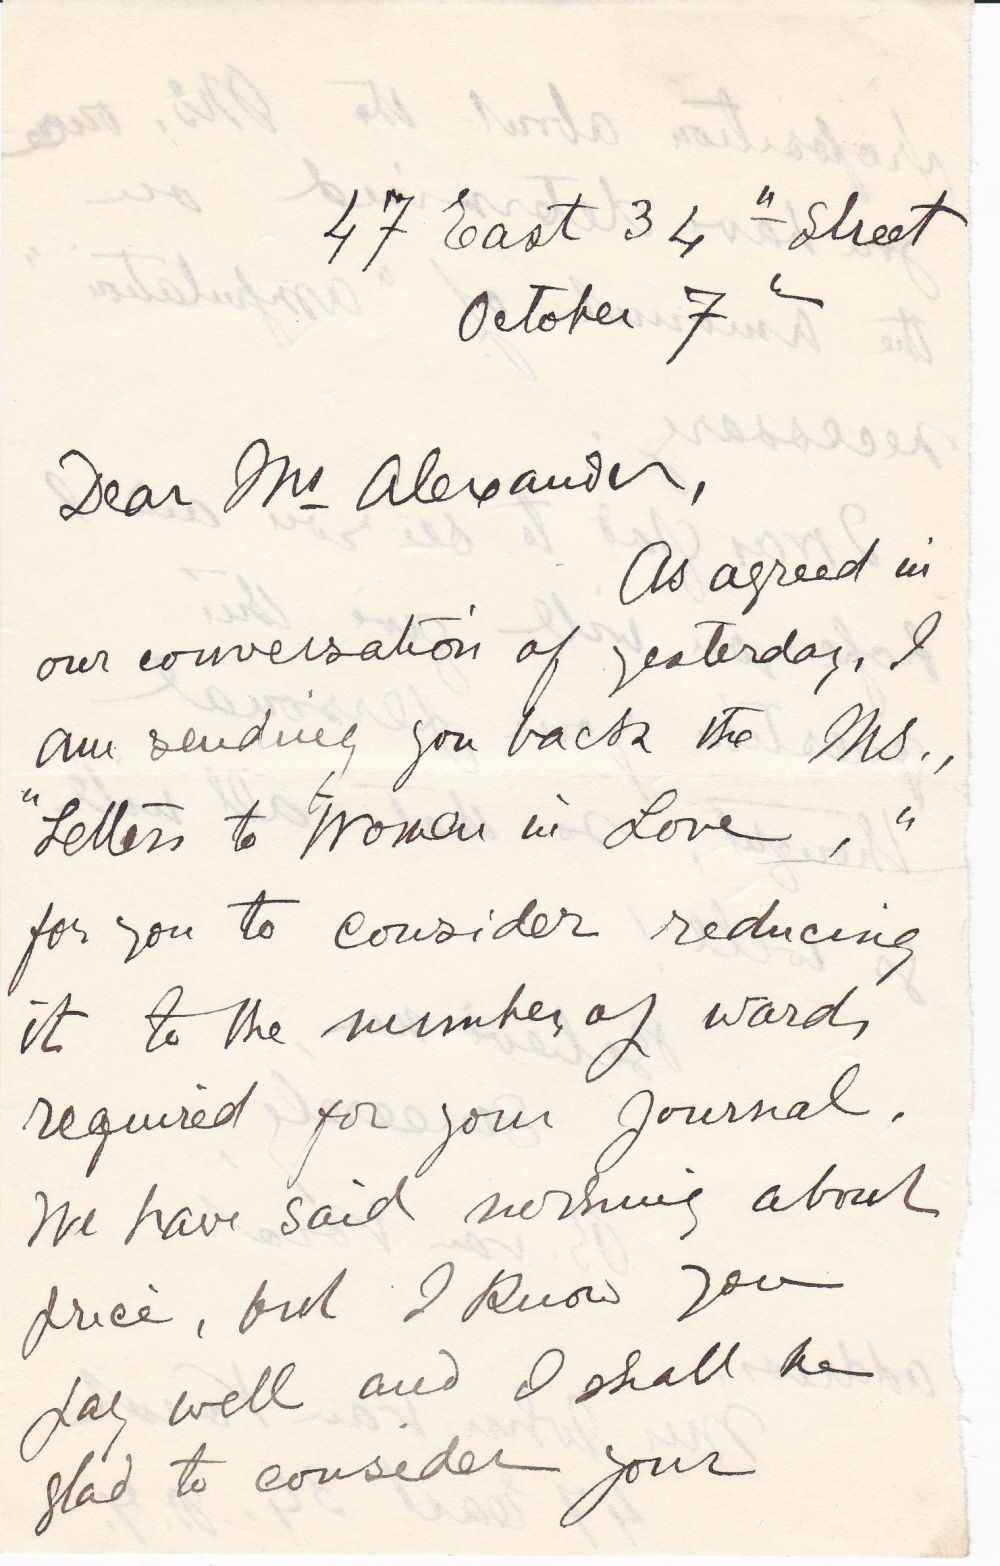 47 East 34" Street
October 7"
Dear Mr Alexander,
As agreed in
our conversation of yesterday, I
am sending you back the Ms.,
"Letters to Women in Love,"
for you to consider reducing
it to the number of words
required for your Journal.
We have said nothing about
price, but I know you
pay well and I shall be
glad to consider your